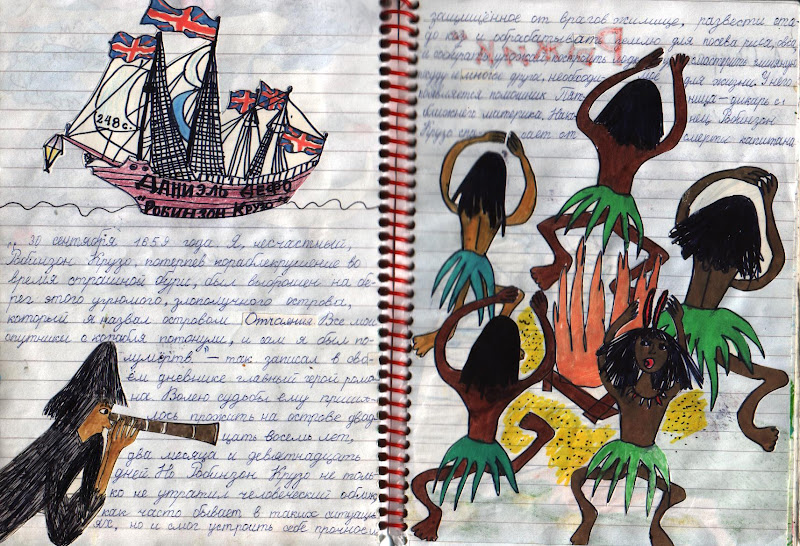 248 с.
ДАНИЭЛЬ ДЕФО
"РОБИНЗОН КРУЗО"
"30 сентября 1659 года Я, несчастный,
Робинзон Крузо, потерпев кораблекрушение во
время страшной бури, был выброшен на бе-
рег этого угрюмого, злополучного острова,
который я назвал островом Отчаяния Все мои
спутники с корабля потонули, и сам я был по-
лумертв." – так записал в сво-
ем дневнике главный герой рома-
на Волею судьбы ему пришл
лось прожить на острове двад-
цать восемь лет,
два месяца и девятнадцать
дней. Но Робинзон Крузо не толь-
ко не утратил человеческий облик,
как часто бывает в таких ситуаци-
ях, но и смог устроить себе прочное,
защищённое от врагов жилище, развести ста-
до коз и обрабатывать землю для посева риса, овса,
и построить
для жизни. У него
появляется помощник Пят ница – дикарь с
ближнего материка. нец Робинзон
Крузо спа ает от смерти капитана